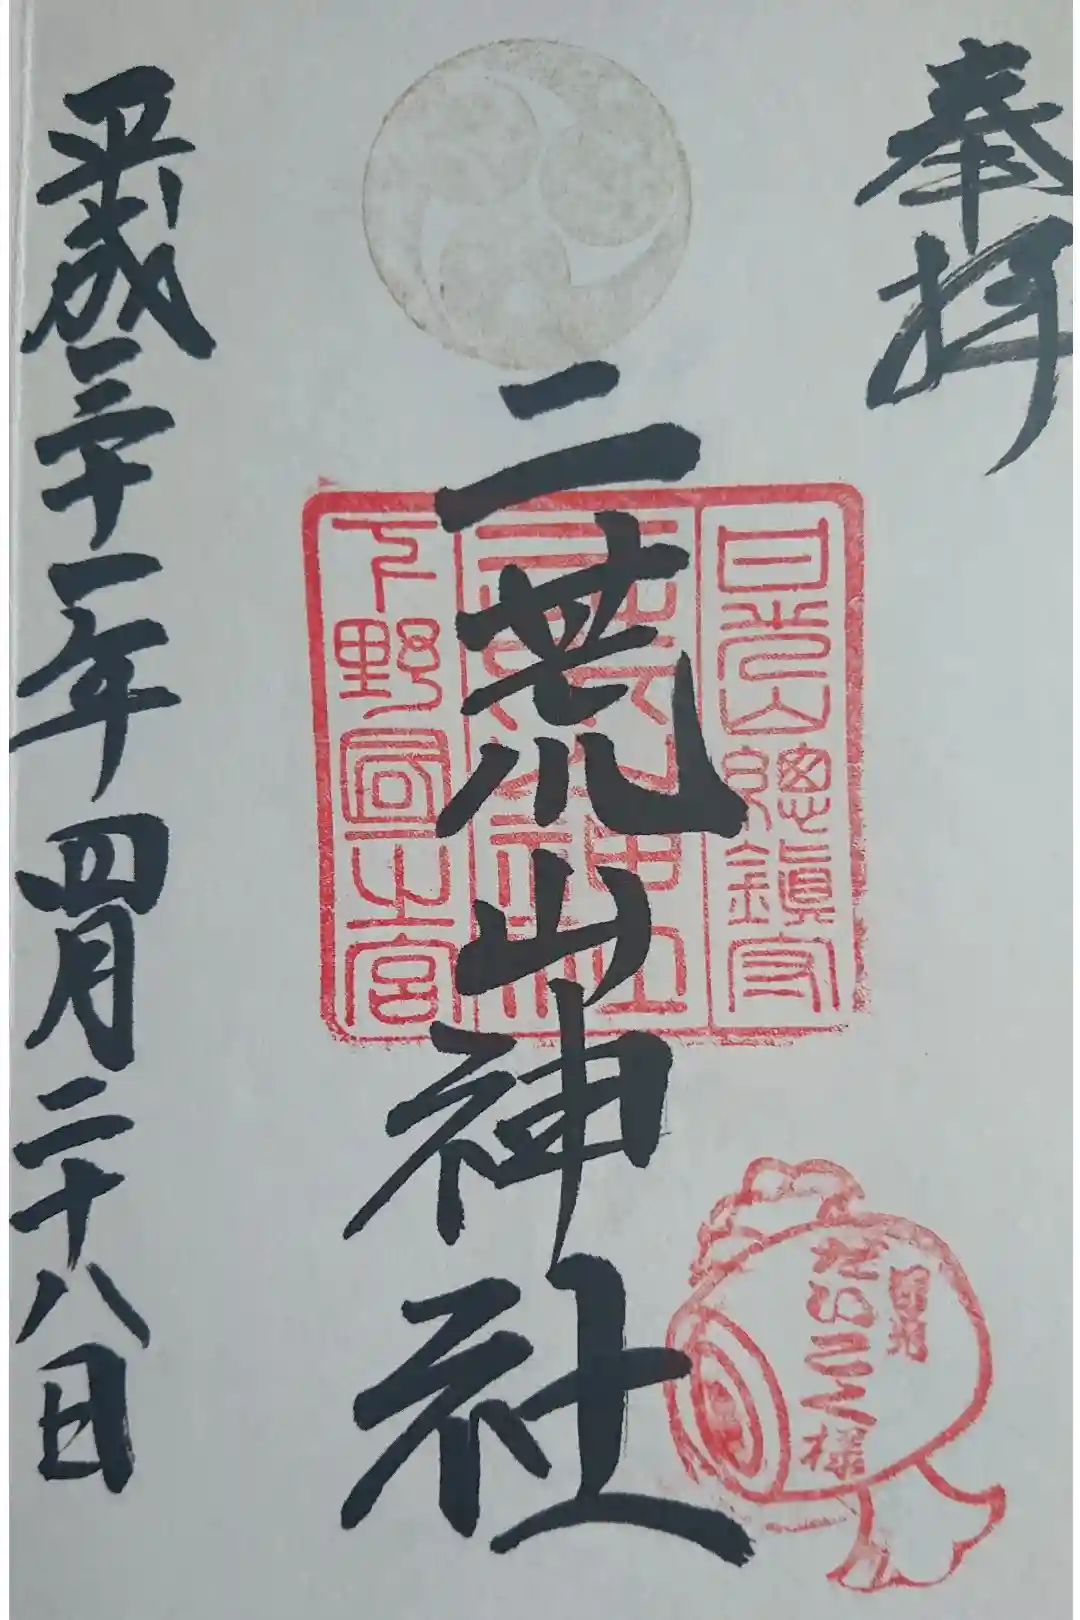 奉拝
日光山總鎮守
二荒山神社
下野國一之宮
日光
だいこく様
平成三十一年四月二十八日